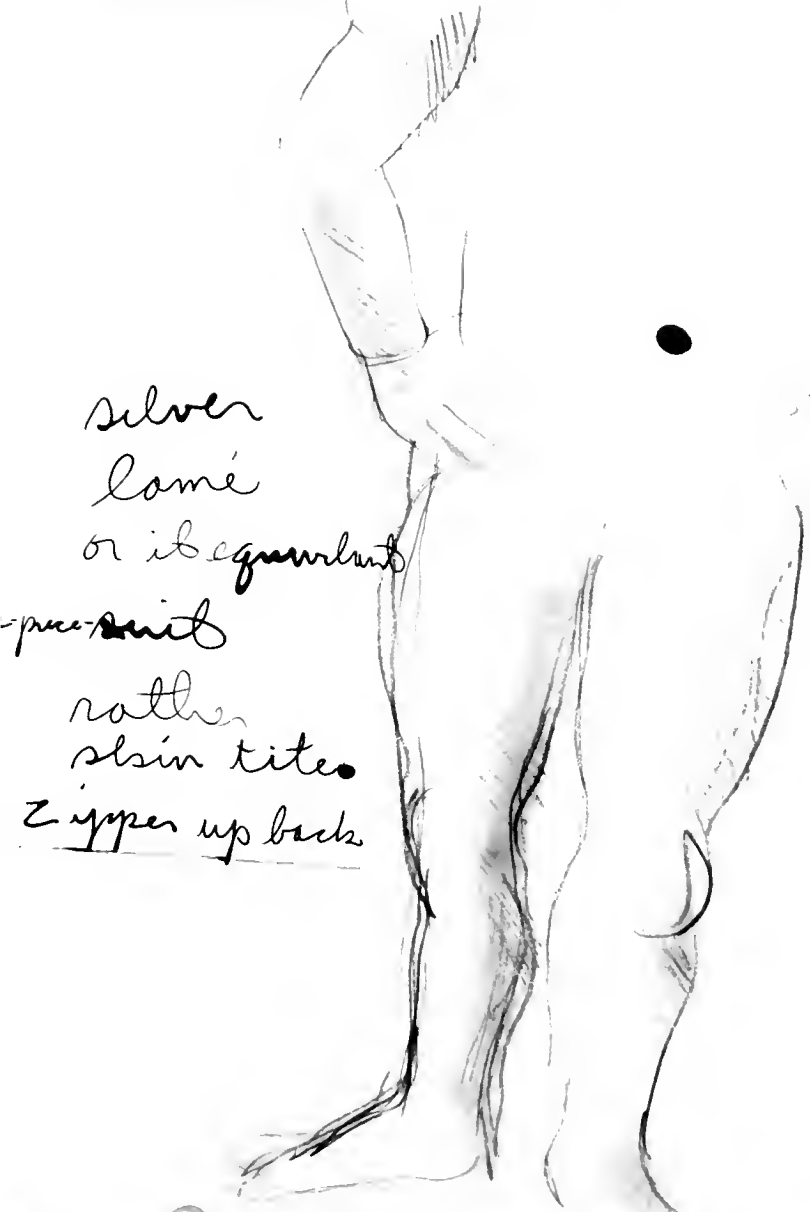 silver
lamé
or its equivalent
-piece-suit
rather
skin tite.
Zipper up back